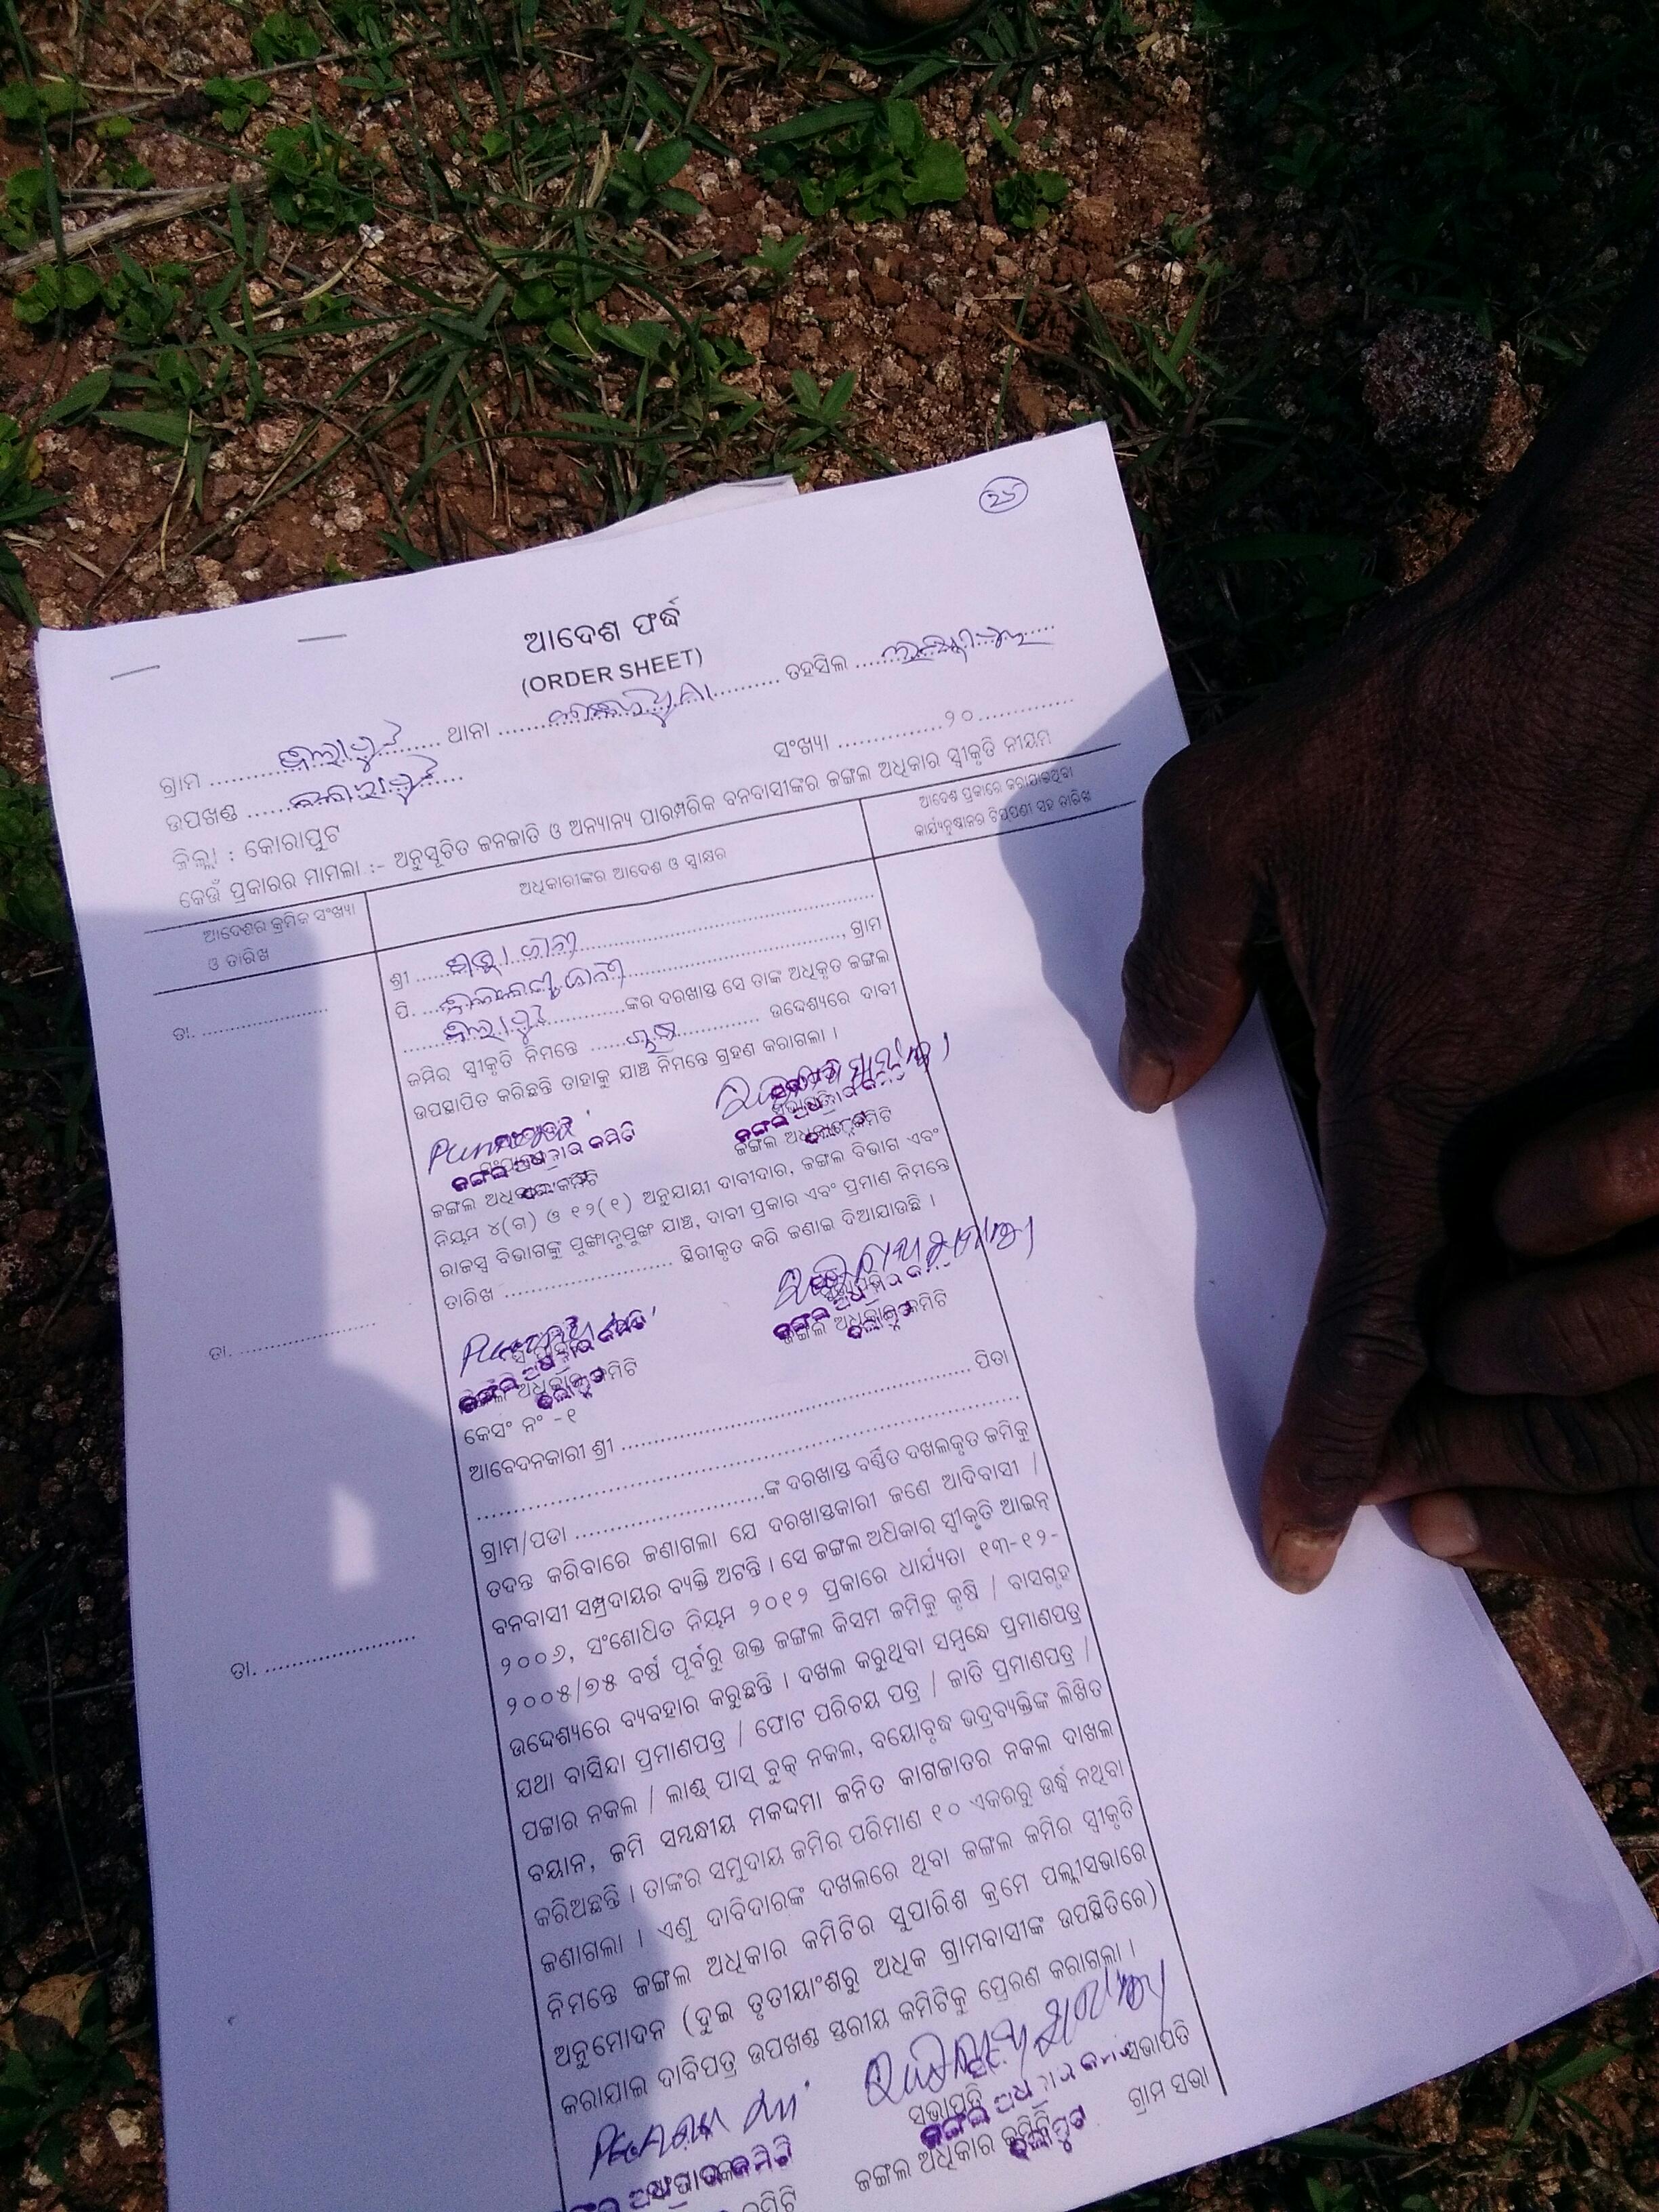 25
ଆଦେଶ ଫର୍ଦ୍ଦ
(ORDER SHEET)
ଗ୍ରାମ .................... ଥାନା .................... ତହସିଲ ....................
ଉପଖଣ୍ଡ ....................
ସଂଖ୍ୟା ...............୨୦..............
ଜିଲ୍ଲା : କୋରାପୁଟ
କେଉଁ ପ୍ରକାରର ମାମଲା :- ଅନୁସୂଚିତ ଜନଜାତି ଓ ଅନ୍ୟାନ୍ୟ ପାରମ୍ପରିକ ବନବାସୀଙ୍କର ଜଙ୍ଗଲ ଅଧିକାର ସ୍ୱୀକୃତି ନୀୟମ
ଆଦେଶର କ୍ରମିକ ସଂଖ୍ୟା
ଓ ତାରିଖ
ଅଧିକାରୀଙ୍କର ଆଦେଶ ଓ ସ୍ୱାକ୍ଷର
ଆଦେଶ ପ୍ରକାରେ କରାଯାଇଥିବା
କାର୍ଯ୍ୟନୁଷ୍ଠାନର ଟିପ୍ପଣୀ ସହ ତାରିଖ
ତା. ....................
ଶ୍ରୀ .................... ଜାନୀ ....................
ପି. .................... ଜାନୀ ...................., ଗ୍ରାମ
....................ଙ୍କର ଦରଖାସ୍ତ ସେ ତାଙ୍କ ଅଧିକୃତ ଜଙ୍ଗଲ
ଜମିର ସ୍ୱୀକୃତି ନିମନ୍ତେ .................... ଉଦ୍ଦେଶ୍ୟରେ ଦାବୀ
ଉପସ୍ଥାପିତ କରିଛନ୍ତି ତାହାକୁ ଯାଞ୍ଚ ନିମନ୍ତେ ଗ୍ରହଣ କରାଗଲା ।
ସଭାପତି
ଜଙ୍ଗଲ ଅଧିକାର କମିଟି
ଜଙ୍ଗଲ ଅଧିକାର କମିଟି
ନିୟମ ୪(ଗ) ଓ ୧୨(୧) ଅନୁଯାୟୀ ଦାବୀଦାର, ଜଙ୍ଗଲ ବିଭାଗ ଏବଂ
ରାଜସ୍ୱ ବିଭାଗଙ୍କୁ ପୁଙ୍ଖାନୁପୁଙ୍ଖ ଯାଞ୍ଚ, ଦାବୀ ପ୍ରକାର ଏବଂ ପ୍ରମାଣ ନିମନ୍ତେ
ତାରିଖ .................... ସ୍ଥିରୀକୃତ କରି ଜଣାଇ ଦିଆଯାଉଛି ।
ତା. ....................
ଜଙ୍ଗଲ ଅଧିକାର କମିଟି
ଜଙ୍ଗଲ ଅଧିକାର କମିଟି
କେସଂ ନଂ -୧
ଆବେଦନକାରୀ ଶ୍ରୀ .................... ପିତା
....................
ଗ୍ରାମ/ପଡା ....................ଙ୍କ ଦରଖାସ୍ତ ବର୍ଣ୍ଣିତ ଦଖଲକୃତ ଜମିକୁ
ତା. ....................
ତଦନ୍ତ କରିବାରେ ଜଣାଗଲା ଯେ ଦରଖାସ୍ତକାରୀ ଜଣେ ଆଦିବାସୀ /
ବନବାସୀ ସମ୍ପ୍ରଦାୟର ବ୍ୟକ୍ତି ଅଟନ୍ତି । ସେ ଜଙ୍ଗଲ ଅଧିକାର ସ୍ୱୀକୃତି ଆଇନ୍
୨୦୦୬, ସଂଶୋଧିତ ନିୟମ ୨୦୧୨ ପ୍ରକାରେ ଧାର୍ଯ୍ୟତା ୧୩-୧୨-
୨୦୦୫/୭୫ ବର୍ଷ ପୂର୍ବରୁ ଉକ୍ତ ଜଙ୍ଗଲ କିସମ ଜମିକୁ କୃଷି / ବାସଗୃହ
ଉଦ୍ଦେଶ୍ୟରେ ବ୍ୟବହାର କରୁଛନ୍ତି । ଦଖଲ କରୁଥିବା ସମ୍ବନ୍ଧେ ପ୍ରମାଣପତ୍ର
ଯଥା ବାସିନ୍ଦା ପ୍ରମାଣପତ୍ର / ଫୋଟ ପରିଚୟ ପତ୍ର / ଜାତି ପ୍ରମାଣପତ୍ର /
ପଟ୍ଟାର ନକଲ / ଲାଣ୍ଡ ପାସ୍ ବୁକ୍ ନକଲ, ବୟୋବୃଦ୍ଧ ଭଦ୍ରବ୍ୟକ୍ତିଙ୍କ ଲିଖିତ
ବୟାନ, ଜମି ସମ୍ବନ୍ଧୀୟ ମକଦ୍ଦମା ଜନିତ କାଗଜାତର ନକଲ ଦାଖଲ
କରିଅଛନ୍ତି । ତାଙ୍କର ସମୁଦାୟ ଜମିର ପରିମାଣ ୧୦ ଏକରରୁ ଉର୍ଦ୍ଧ୍ୱ ନଥିବା
ଜଣାଗଲା । ଏଣୁ ଦାବିଦାରଙ୍କ ଦଖଲରେ ଥିବା ଜଙ୍ଗଲ ଜମିର ସ୍ୱୀକୃତି
ନିମନ୍ତେ ଜଙ୍ଗଲ ଅଧିକାର କମିଟିର ସୁପାରିଶ କ୍ରମେ ପଲ୍ଲୀସଭାରେ
ଅନୁମୋଦନ (ଦୁଇ ତୃତୀୟାଂଶରୁ ଅଧିକ ଗ୍ରାମବାସୀଙ୍କ ଉପସ୍ଥିତିରେ)
କରାଯାଇ ଦାବିପତ୍ର ଉପଖଣ୍ଡ ସ୍ତରୀୟ କମିଟିକୁ ପ୍ରେରଣ କରାଗଲା ।
ସଭାପତି ସଭାପତି
ଜଙ୍ଗଲ ଅଧିକାର କମିଟି ଗ୍ରାମ ସଭା